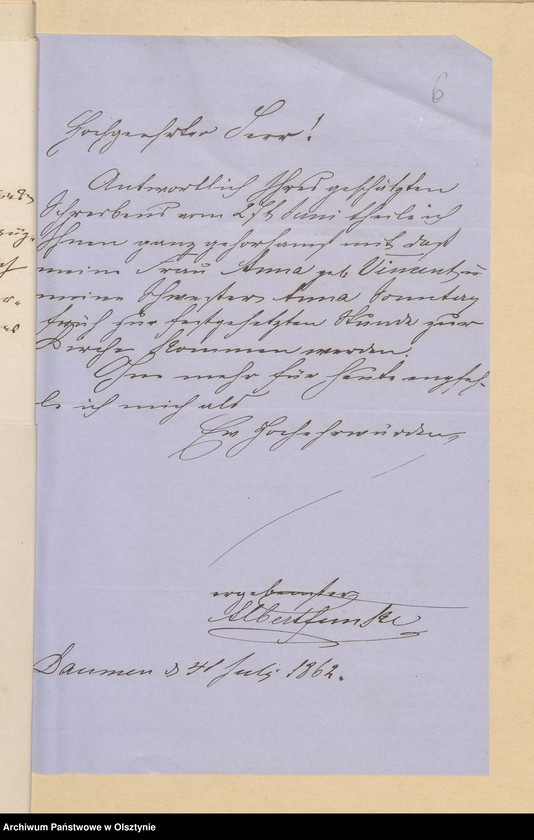 6
Hochgeehrter Herr!
Antwortlich Ihres geschätzten
Schreibens vom Juni theile ich
Ihnen ganz gehorsamst mit daß
meine Frau Anna geb. Vincent u
meine Schwester Anna Sonntag
früh zur festgesetzten Stunde zur
Kirche kommen werden.
mehr für heute empfeh-
le ich mich als
Ew Hochehrwürden
ergebenster
Albert Funke
Daumen d July 1862.
Archiwum Państwowe w Olsztynie